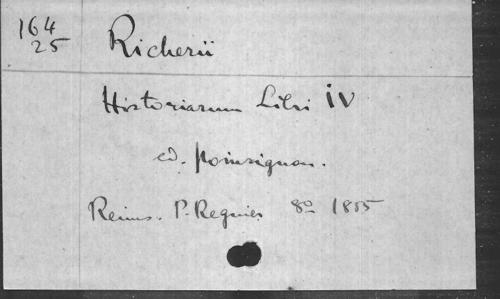 164
25
Richerii
Historiarum Libri IV
ed. Poinsignon.
Reims. P. Regnier 8º 1855